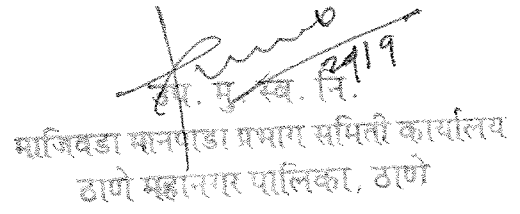 २५/९
उप. मु. स्व. नि.
माजिवडा मानपाडा प्रभाग समिती कार्यालय
ठाणे महानगर पालिका, ठाणे